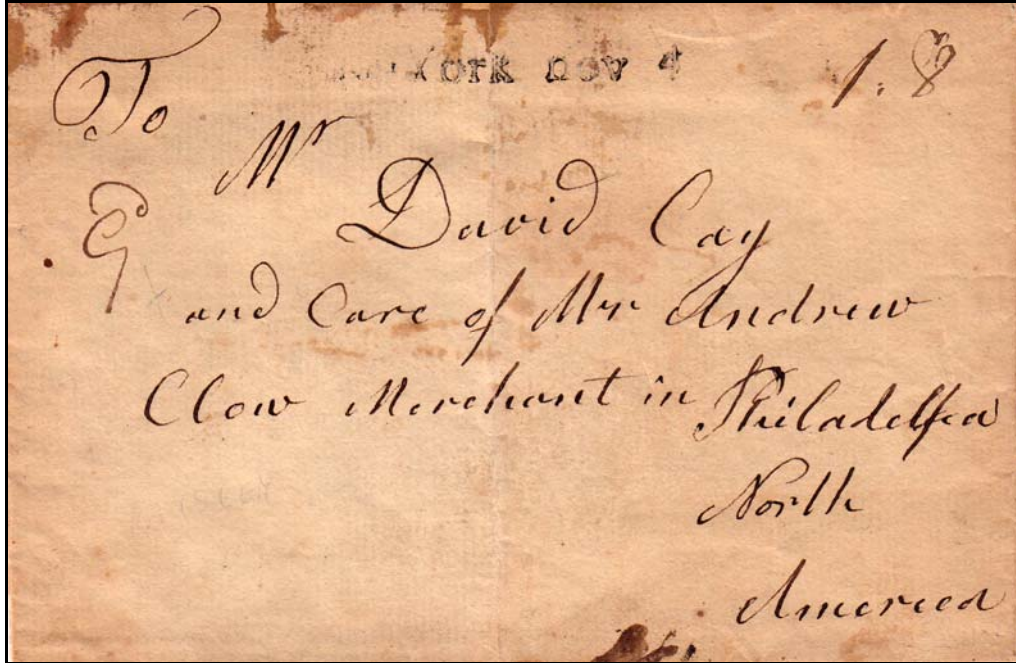 York nov 4
1. 8
To
Mr
David Cay
and Care of Mr Andrew
Clow Merchant in Philadelfea
North
America